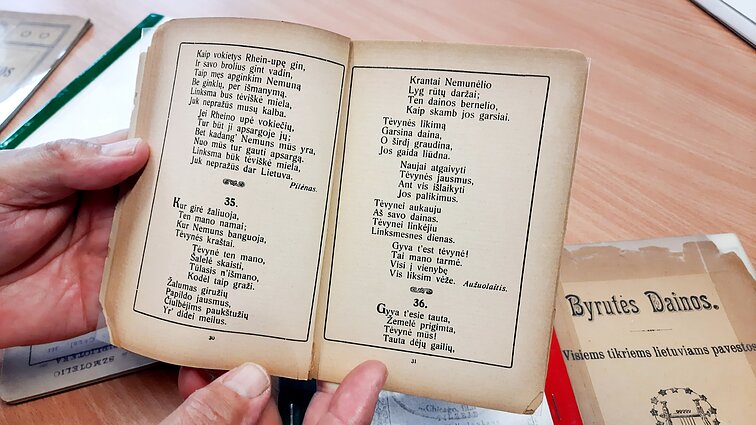 Kaip vokietys Rhein-upę gin,
Ir savo brolius gint vadin,
Taip męs apginkim Nemuną
Be ginklų, per išmanymą.
Linksma bus tėviškė miela,
Juk nepražuš musų kalba.
Jei Rheino upė vokiečių,
Tur būt ji apsargoje jų;
Bet kadang' Nemuns mūs yra,
Nuo mūs tur gauti apsargą.
Linksma būk tėviškė miela,
Juk nepražuš dar Lietuva.
Pilėnas.
35.
Kur girė žaliuoja,
Ten mano namai;
Kur Nemuns banguoja,
Tėvynės kraštai.
Tėvynė ten mano,
Šalelė skaisti,
Tūlasis n'išmano,
Kodėl taip graži.
Žalumas giružių
Papildo jausmus,
Čiulbėjims paukštužių
Yr' didei meilus.
30
Krantai Nemunėlio
Lyg rūtų daržai;
Ten dainos bernelio,
Kaip skamb jos garsiai.
Tėvynės likimą
Garsina daina,
O širdį graudina,
Jos gaida liūdna.
Naujai atgaivyti
Tėvynės jausmus,
Ant vis išlaikyti
Jos palikimus.
Tėvynei aukauju
Aš savo dainas.
Tėvynei linkėjiu
Linksmesnes dienas.
Gyva t'est tėvynė!
Tai mano tarmė.
Visi į vienybę
Vis liksim vėže.
Aužuolaitis.
36.
Gyva t'esie tauta,
Žemelė prigimta,
Tėvynė mūs!
Tauta dėjų gailių,
31
SZMOTELIO
Chicago,
Byrutės Dainos.
Visiems tikriems lietuviams pavestos